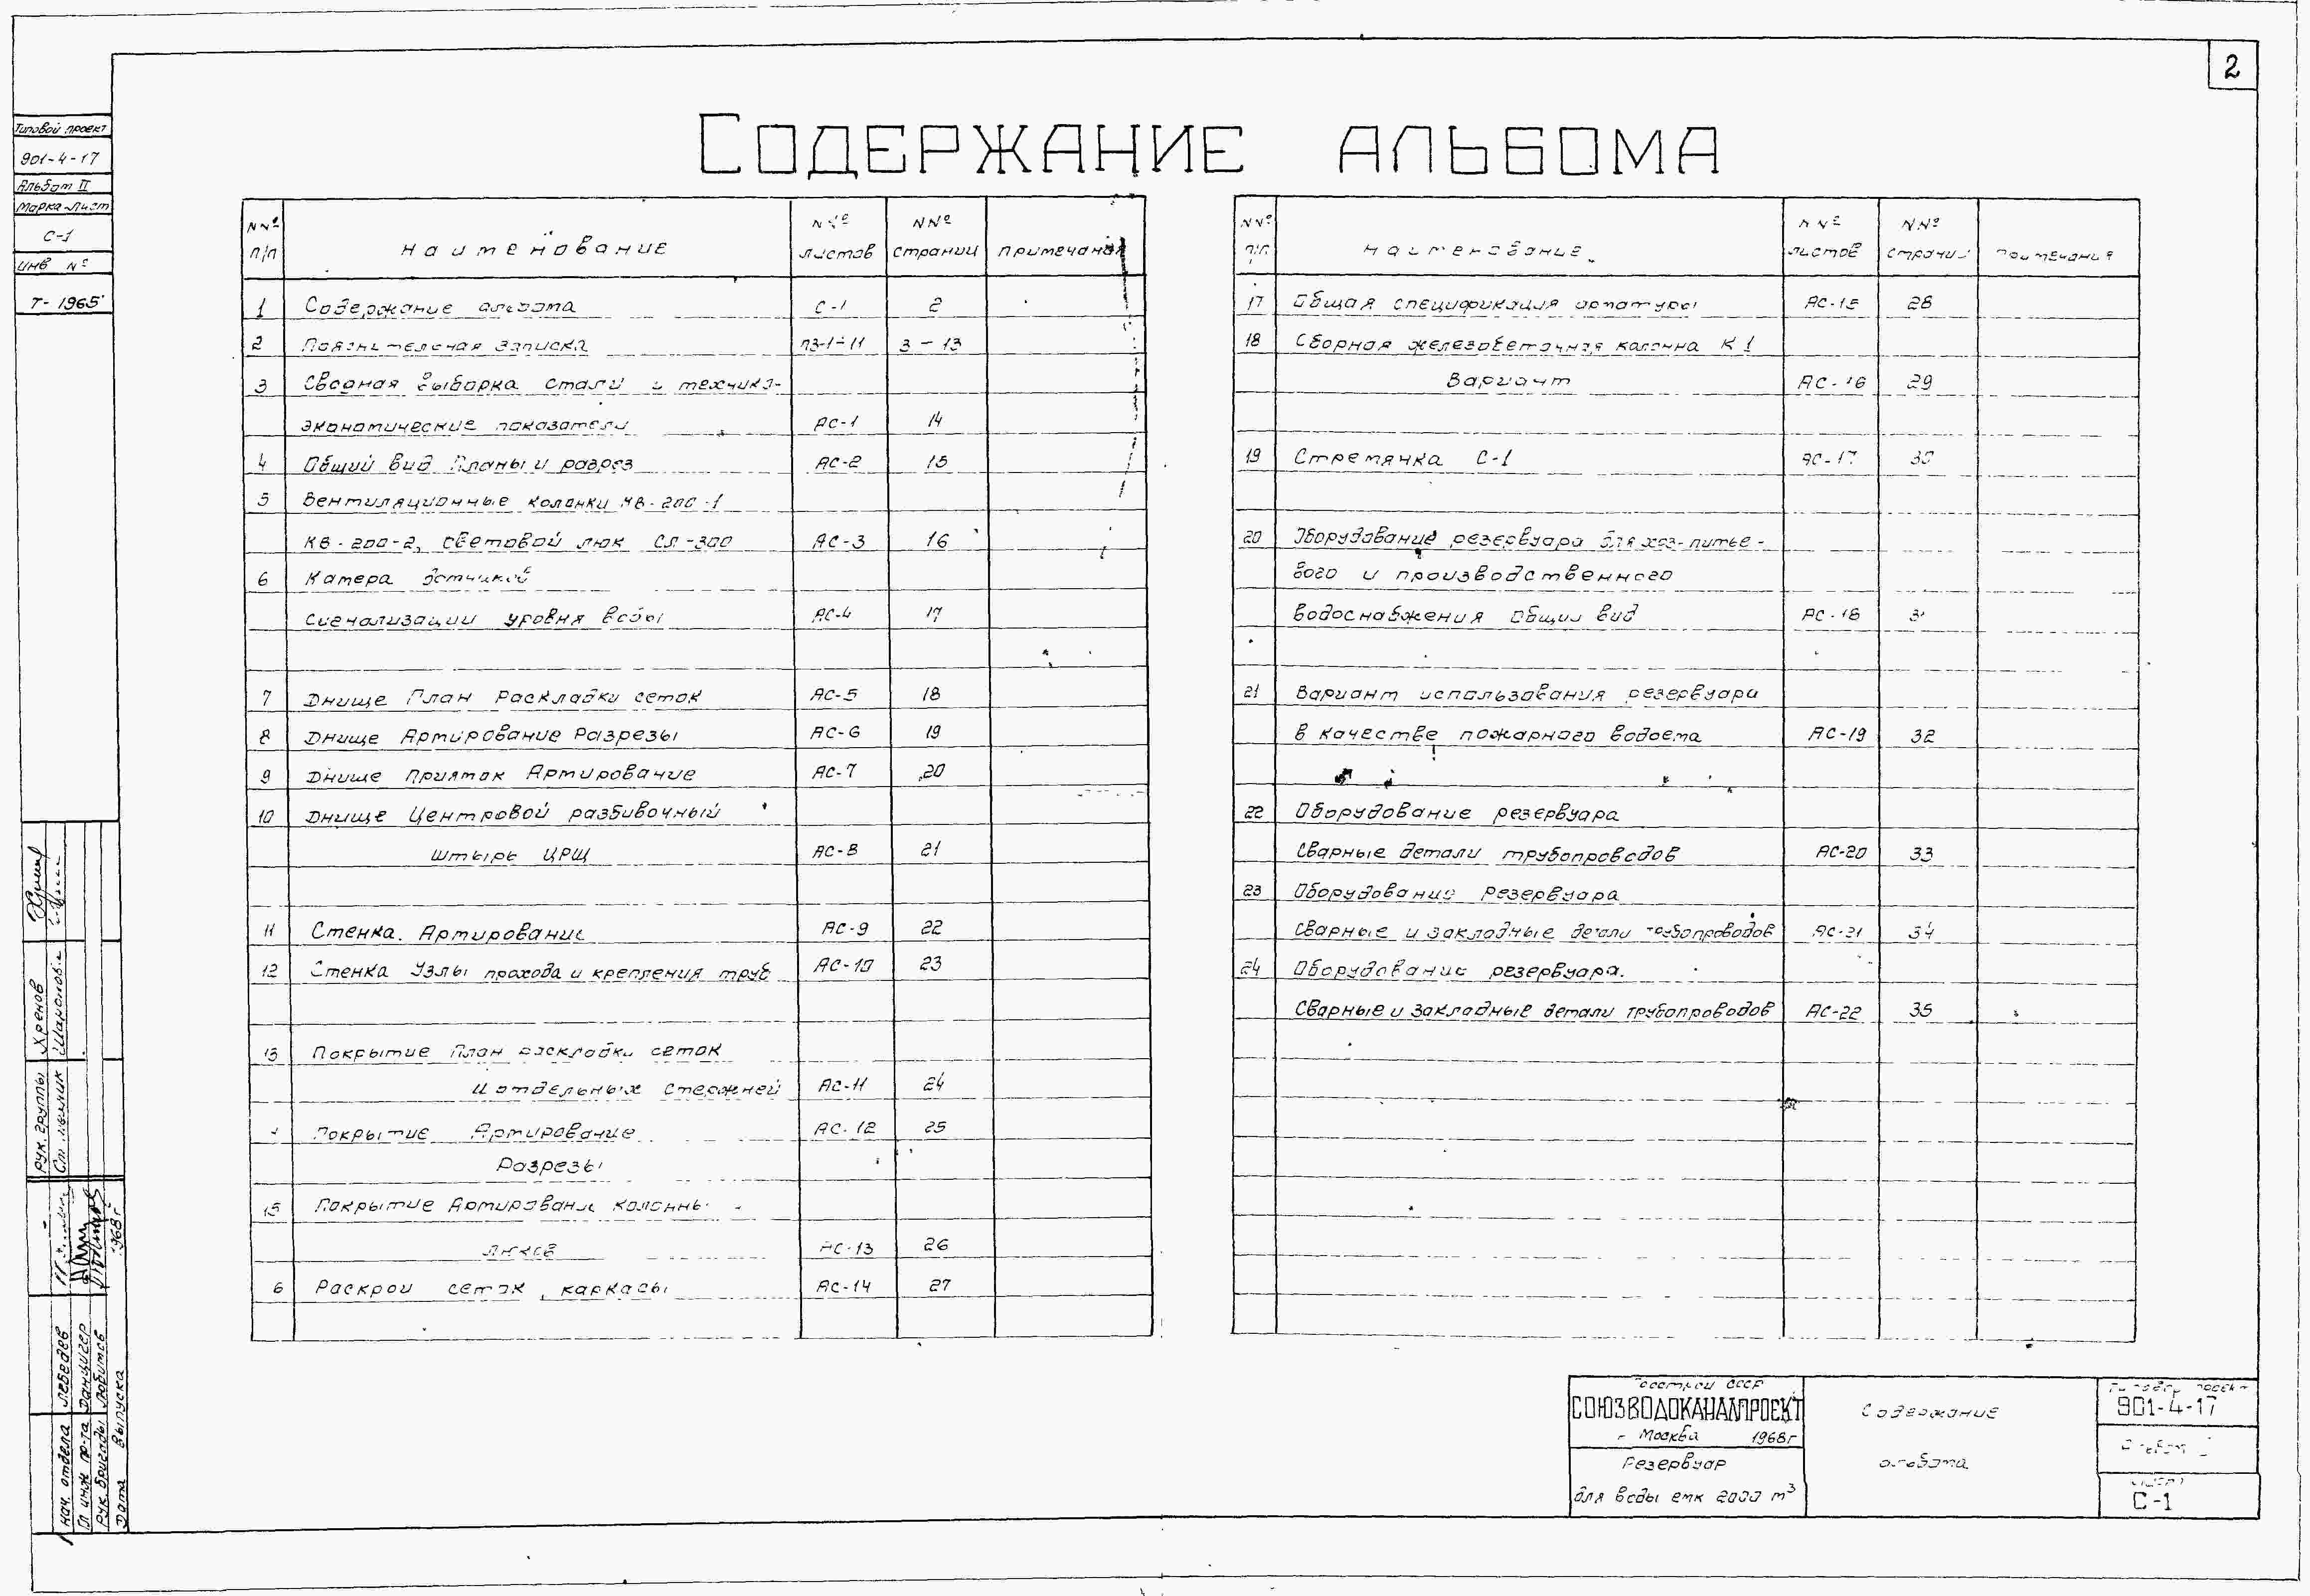 2
Типовой проект
901-4-17
Альбом II
Марка-Лист
С-1
Инв №
Т-1965
СОДЕРЖАНИЕ АЛЬБОМА
NN№ п/п Наименование NN№ листов NN№ страниц Примечания
1 Содержание альбома С-1 2
2 Пояснительная записка ПЗ-1-11 3-13
3 Сводная выборка стали и технико-
экономические показатели АС-1 14
4 Общий вид Планы и разрез АС-2 15
5 Вентиляционные колонки КВ-200-1
КВ-200-2, Световой люк СЛ-300 АС-3 16
6 Камера датчиков
сигнализации уровня воды АС-4 17
7 Днище План раскладки сеток АС-5 18
8 Днище Армирование Разрезы АС-6 19
9 Днище Приямок Армирование АС-7 20
10 Днище Центровой разбивочный
штырь ЦРШ АС-8 21
11 Стенка. Армирование АС-9 22
12 Стенка Узлы прохода и крепления труб АС-10 23
13 Покрытие План раскладки сеток
и отдельных стержней АС-11 24
Покрытие Армирование АС-12 25
Разрезы
15 Покрытие Армирование колонны
люков АС-13 26
6 Раскрой сеток, каркасы АС-14 27
NN№ п/п Наименование NN№ листов NN№ страниц Примечания
17 Общая спецификация арматуры АС-15 28
18 Сборная железобетонная колонна К1
Вариант АС-16 29
19 Стремянка С-1 АС-17 30
20 Оборудование резервуара для хоз-питье-
вого и производственного
водоснабжения Общий вид АС-18 31
21 Вариант использования резервуара
в качестве пожарного водоема АС-19 32
22 Оборудование резервуара
Сварные детали трубопроводов АС-20 33
23 Оборудование резервуара
Сварные и закладные детали трубопроводов АС-21 34
24 Оборудование резервуара.
Сварные и закладные детали трубопроводов АС-22 35
Рук. группы Хренов
Нач. отдела Лебедев
Гл инж пр-та Данцигер
Рук. бригады
Дата выпуска 1968г
Госстрой СССР
СОЮЗВОДОКАНАЛПРОЕКТ
г Москва 1968г
Резервуар
для воды емк 2000 м³
Содержание
альбома
Типовой проект
901-4-17
Альбом
С-1